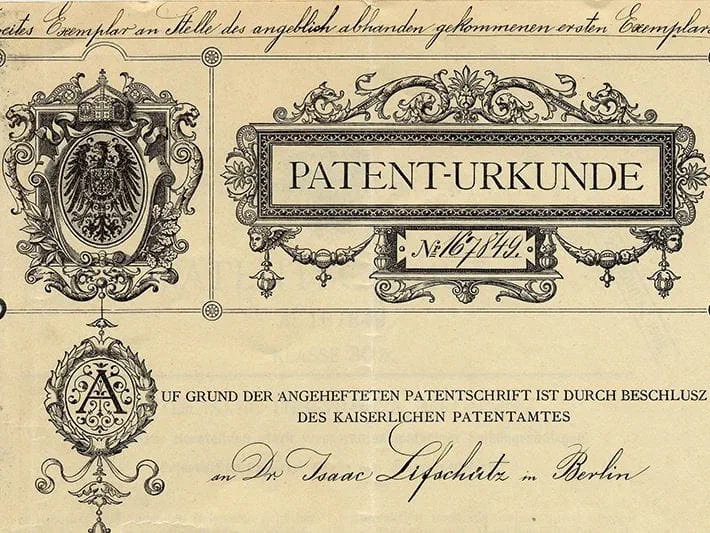 Exemplar an Stelle des angeblich abhanden gekommenen ersten Exemplars
PATENT-URKUNDE
No 167849.
AUF GRUND DER ANGEHEFTETEN PATENTSCHRIFT IST DURCH BESCHLUSZ
DES KAISERLICHEN PATENTAMTES
an Dr. Isaac Lifschütz in Berlin